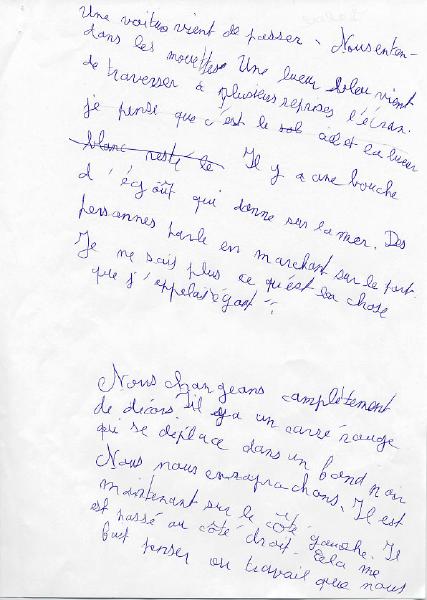 Une voiture vient de passer. Nous enten-
dans les mouettes Une lueur bleu vient
de traverser à plusieurs reprises l'écran.
je pense que c'est le sol ciel et la lueur
blanc resté le Il y a une bouche
d'égoût qui donne sur la mer. Des
personnes parle en marchant sur le port.
Je ne sais plus ce qu'est la chose
que j'appelais égout"
Nous changeans complètement
de décors. Il y a un carré rouge
qui se déplace dans un fond noir
Nous nous en raprochans. Il est
maintenant sur le côté gauche. Il
est passé au côté droit. Cela me
fait penser au travail que nous